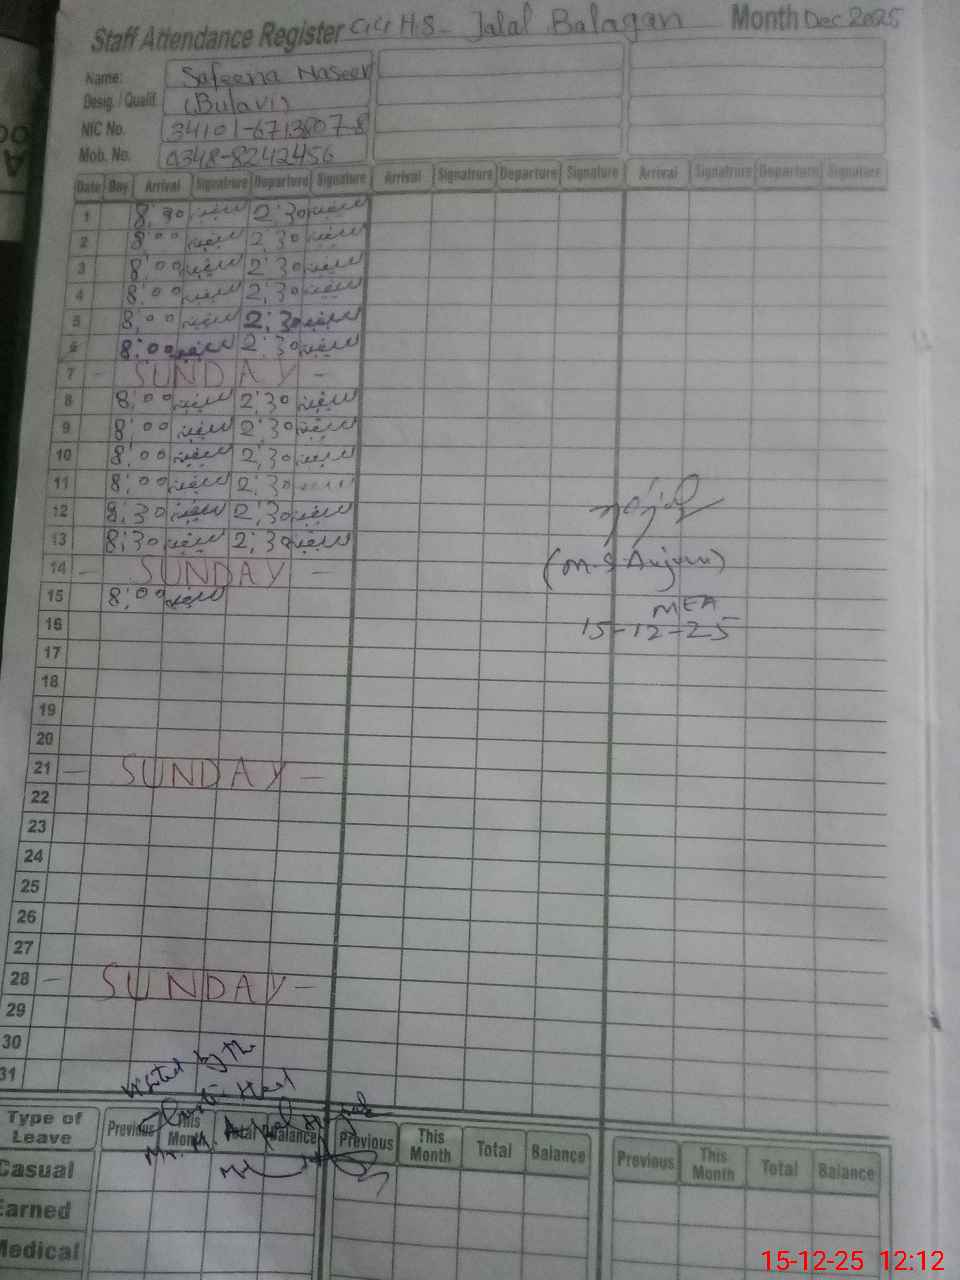 Staff Attendance Register GGHS- Jalal Balagan Month Dec 2025
Name: Safeena Naseer
Desig. / Qualif. (Bulavi)
NIC No. 34101-6713807-8
Mob. No. 0348-8242456
Date Day Arrival Signature Departure Signature Arrival Signature Departure Signature Arrival Signature Departure Signature
1 8:30 سفینہ 2:30 سفینہ
2 8:00 سفینہ 2:30 سفینہ
3 8:00 سفینہ 2:30 سفینہ
4 8:00 سفینہ 2:30 سفینہ
5 8:00 سفینہ 2:30 سفینہ
6 8:00 سفینہ 2:30 سفینہ
7 - SUNDAY -
8 8:00 سفینہ 2:30 سفینہ
9 8:00 سفینہ 2:30 سفینہ
10 8:00 سفینہ 2:30 سفینہ
11 8:00 سفینہ 2:30
12 8:30 سفینہ 2:30 سفینہ
13 8:30 سفینہ 2:30 سفینہ
14 - SUNDAY -
(M.S Anjum)
15 8:00 سفینہ
MEA
16
15-12-25
17
18
19
20
21 - SUNDAY -
22
23
24
25
26
27
28 - SUNDAY -
29
30
31
Visited by the
Type of Leave Previous This Month Total Balance Previous This Month Total Balance Previous This Month Total Balance
Casual
Earned
Medical
15-12-25 12:12